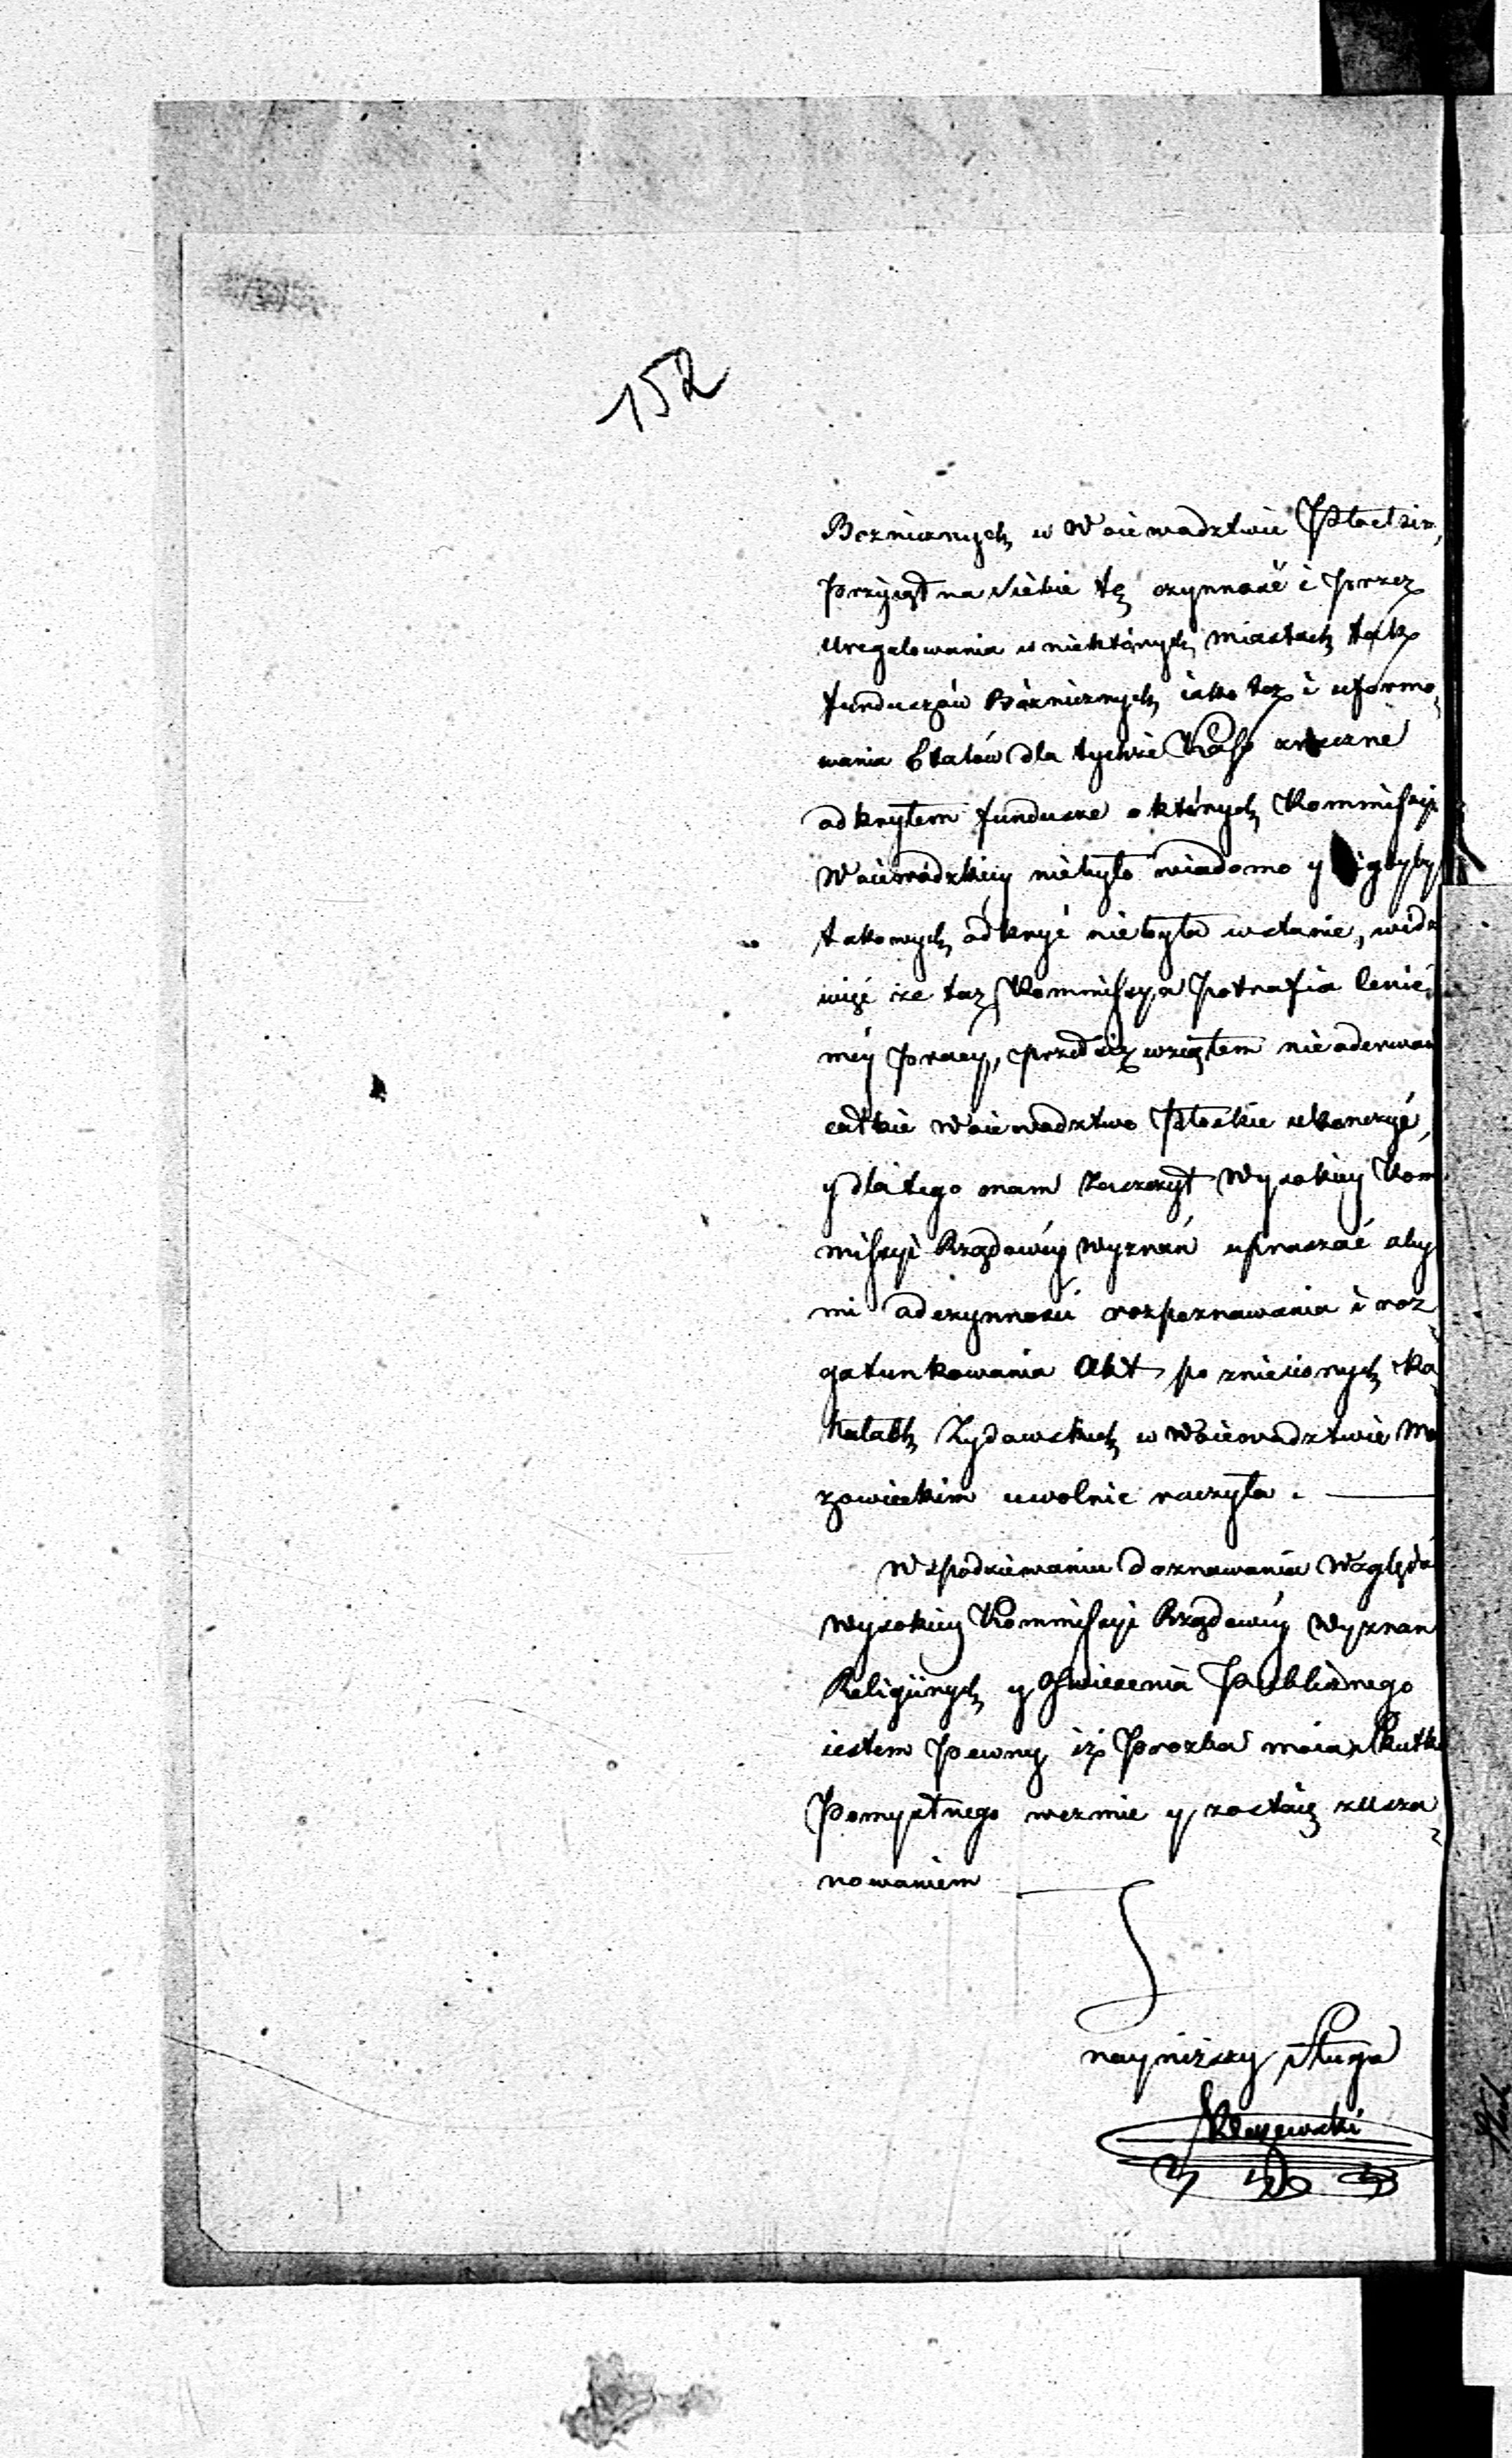 152
Boznicznych w Woiewodztwie Płockim,
przyiął na siebie tę czynność i przez
uregulowania w niektórych miastach tak
funduszów Bóżnicznych iako też i uformo„
wania Etatów dla tychże Kass znaczne
odkryłem fundusze o których Kommissyi
Woiewódzkiey niebyło wiadomo y nigdyby
takowych odkryć niebyła wstanie, widz
więc że taż Kommissya potrafia cenić
méy pracy, przedsię wziąłem nieoderwan
całkie Woiewodztwo Płockie ukonczyć,
y dla tego mam zaszczyt Wysokiey Kom
missyi Rządowéy Wyznań upraszać aby
mi od czynności rozpoznawania i roz„
gatunkowania Akt po zniesionych Ka„
hałach Zydowskich w Woiewodztwie Ma
zowieckim uwolnic raczyła. —
W spodziewaniu doznawania Względó
Wysokiey Kommissyi Rządowéy Wyznan
Religiinych y Oswiecenia Publicznego
iestem pewny iż prozba moia skutk
pomyślnego wezmie y zostaię zusza„
nowaniem
nayniższy Sługa